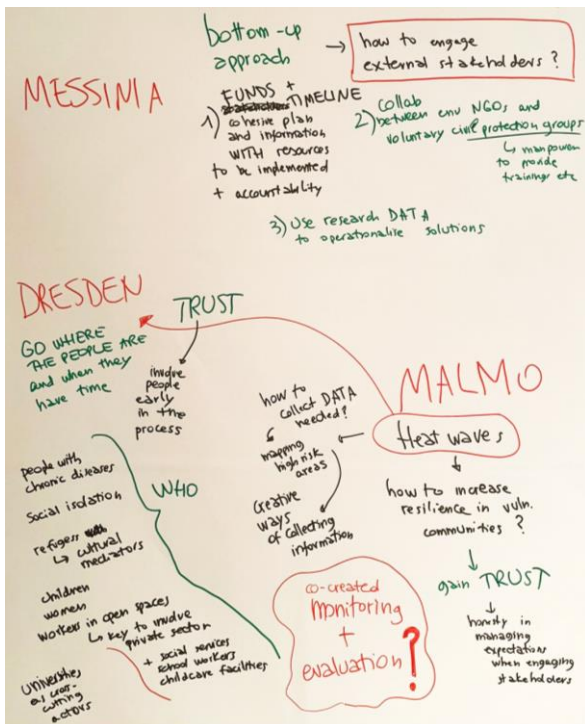 MESSINIA
bottom-up
approach
how to engage
external stakeholders?
FUNDS +
TIMELINE
1) cohesive plan
and information
WITH resources
to be implemented
+ accountability
2) collab
between env NGOs and
voluntary civil protection groups
↳ manpower
to provide
training etc
3) Use research DATA
to operationalise solutions
DRESDEN
TRUST
GO WHERE
THE PEOPLE ARE
and when they
have time
involve
people
early
in the
process
MALMO
Heat waves
how to
collect DATA
needed?
mapping
high risk
areas
creative
ways
of collecting
information
how to increase
resilience in vuln.
communities?
gain TRUST
honesty in
managing
expectations
when engaging
stakeholders
WHO
people with
chronic diseases
social isolation
refugess
↳ cultural
mediators
children
women
workers in open spaces
↳ key to involve
private sector
+ social services
school workers
childcare facilities
universities
as cross-
cutting
actors
co-created
monitoring
+
evaluation?